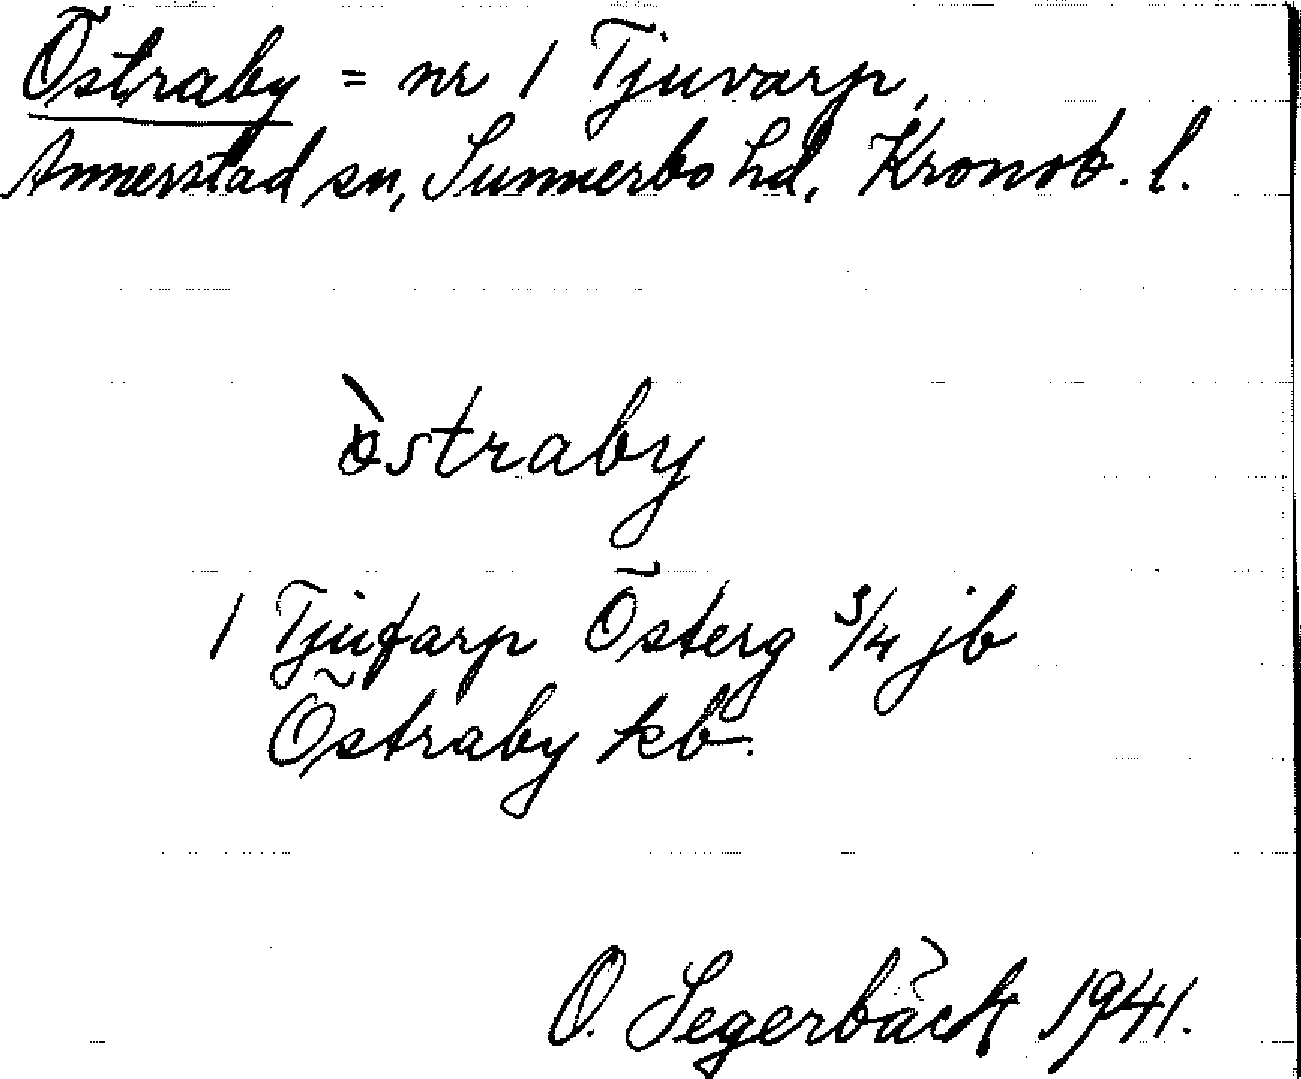 Östraby = nr 1 Tjuvarp,
Annerstad sn, Sunnerbo hd, Kronob. l.
òstraby
1 Tjufarp Österg 3/4 jb
Östraby kb.
O. Segerbäck 1941.